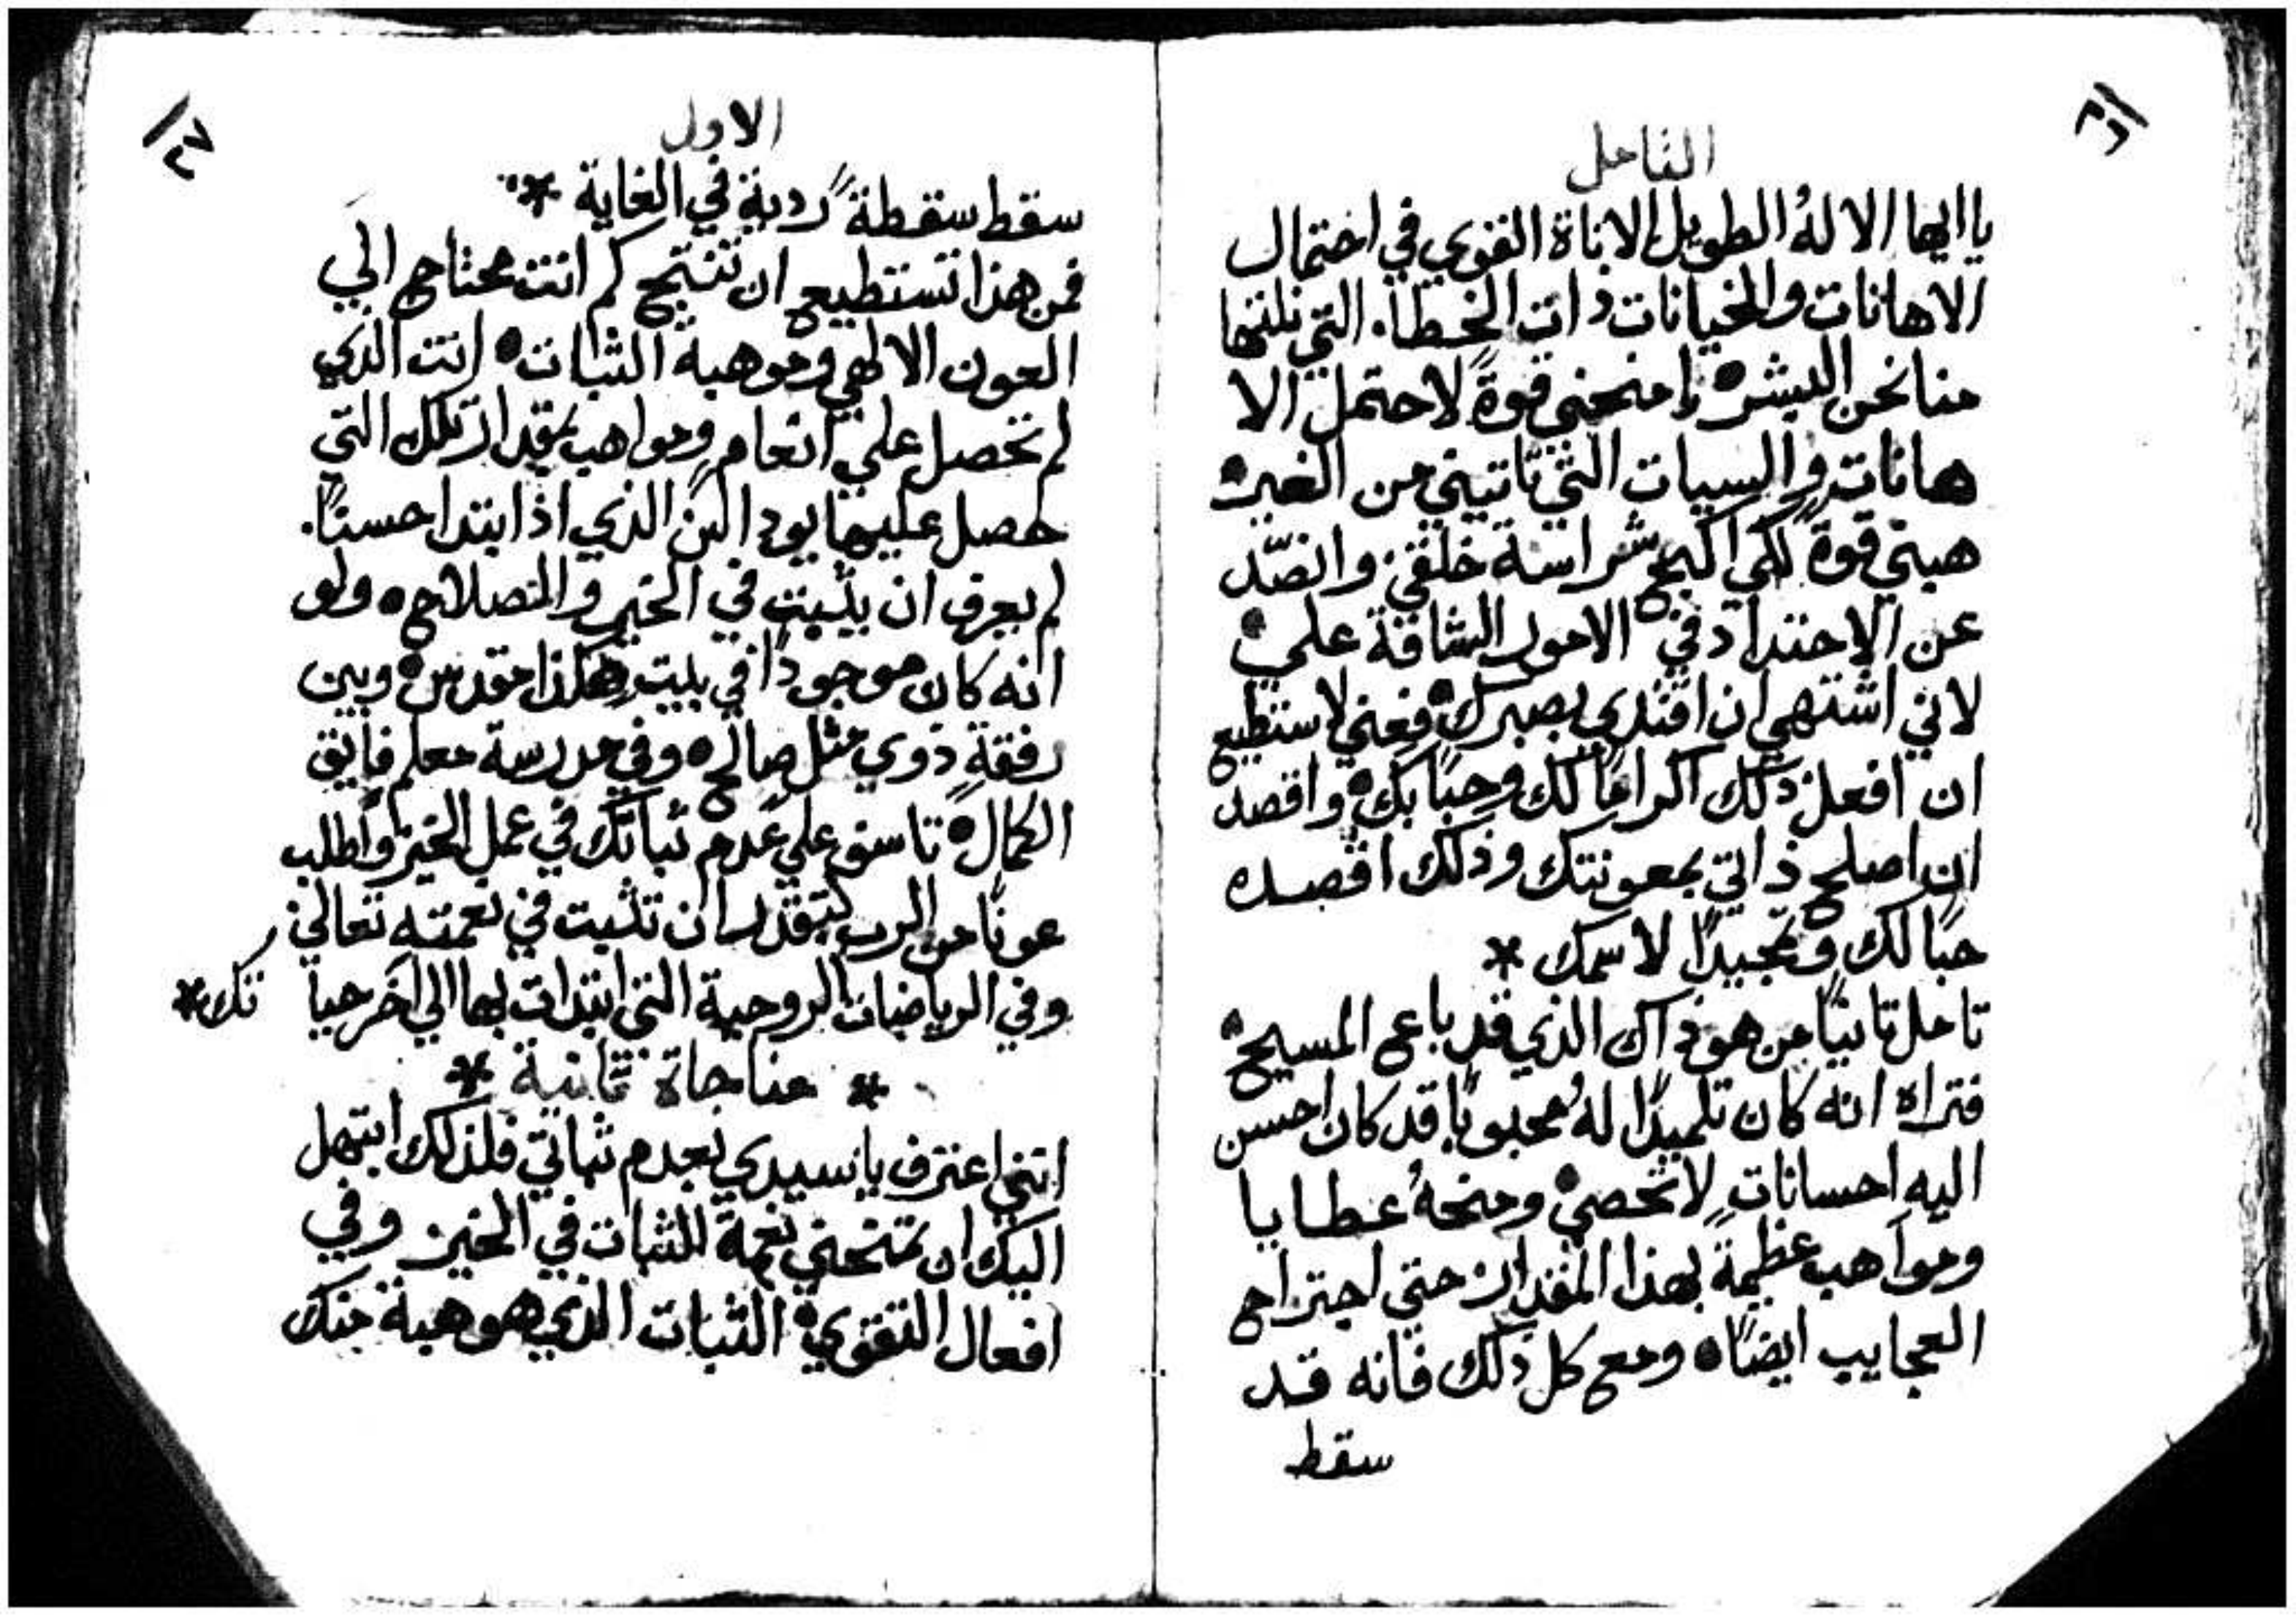 التامل
يا ايها الالهُ الطويل الاناة القوي في احتمال
الاهانات والخيانات ذات الخطا. التي نلتها
منا نحن البشر ه امنحني قوةً لاحتمل الا
هانات والسيات التي تاتيني من الغير ه
هبني قوةً لكي اكبح شراسة خلقي وانصّد
عن الاحتداد في الامور الشاقة علي ه
لاني اشتهي ان اقتدي بصبرك ه فعني لاستطيع
ان افعل ذلك اكرامًا لك وحبًا بك ه واقصد
ان اصلح ذاتي بمعونتك وذلك اقصده
حبًا لك وتمجيدًا لاسمك *
تامل ثانيًا من هو ذاك الذي قد باع المسيح ه
فتراه انه كان تلميذًا لهُ محبوبًا قد كان احسن
اليه احسانات لا تحصي ه ومنحهُ عطايا
ومواهب عظيمةً بهذا المقدار حتي اجتراح
العجايب ايضًا ه ومع كل ذلك فانه قد
سقط
الاول
سقط سقطةً رديةً في الغاية *
فمن هذا تستطيع ان تنتج كم انت محتاج الي
العون الالهي وموهبة الثبات ه انت الذي
لم تحصل علي انعام ومواهب بمقدار تلك التي
حصل عليها يوداس الذي اذ ابتدا حسنًا.
لم يعرف ان يثبت في الخير والصلاح ه ولو
انه كان موجودًا في بيت هكذا مقدس ه وبين
رفقةٍ ذوي مثل صالح ه وفي مدرسة معلم فايق
الكمال ه تاسف علي عدم ثباتك في عمل الخير واطلب
عونًا من الرب لتقدر ان تثبت في نعمته تعالي
وفي الرياضات الروحية التي ابتدات بها الي اخر حيا تك *
* مناجاة ثانية *
انني اعترف يا سيدي بعدم ثباتي فلذلك ابتهل
اليك ان تمنحني نعمة الثبات في الخير وفي
افعال التقوي ه الثبات الذي هو هبة منك